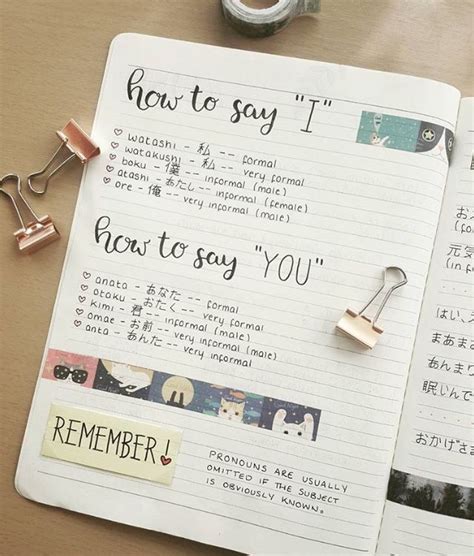 how to say "I"
watashi - 私 -- formal
watakushi - 私 -- very formal
boku - 僕 -- informal (male)
atashi - あたし -- informal (female)
ore - 俺 -- very informal (male)
how to say "YOU"
anata - あなた -- formal
otaku - おたく -- very formal
kimi - 君 -- informal (male)
omae - お前 -- very informal (male)
anta - あんた -- very informal
REMEMBER!
PRONOUNS ARE USUALLY
OMITTED IF THE SUBJECT
IS OBVIOUSLY KNOWN.
元気
(in f
はい、え
まあまあ
あんまり
眠いんで
おかげさま